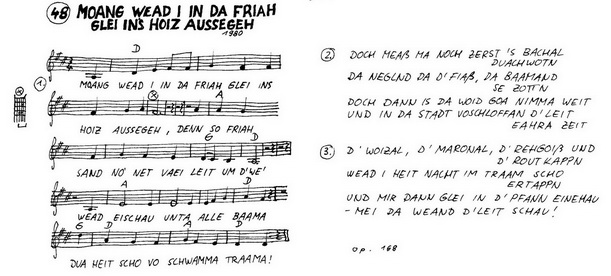 48 MOANG WEAD I IN DA FRIAH
GLEI INS HOIZ AUSSEGEH
1980
D
1.
MOANG WEAD I IN DA FRIAH GLEI INS
A
HOIZ AUSSEGEH, DENN SO FRIAH
G D
SAND NO NET VAEI LEIT UM D'WE'
A D
WEAD EISCHAU UNTA ALLE BAAMA
G D A D
DUA HEIT SCHO VO SCHWAMMA TRAAMA!
2. DOCH MEAß MA NOCH ZERST 'S BACHAL
DUACHWOTN
DA NEGLND DA D'FIAß, DA BAAMAND
SE ZOTT'N
DOCH DANN IS DA WOID GOA NIMMA WEIT
UND IN DA STADT VOSCHLOFFAN D'LEIT
EAHRA ZEIT
3. D'WOIZAL, D'MARONAL, D'REHGOIß UND
D'ROUTKAPPN
WEAD I HEIT NACHT IM TRAAM SCHO
ERTAPPN
UND MIR DANN GLEI IN D'PFANN EINEHAU
- MEI DA WEAND D'LEIT SCHAU!
op. 168